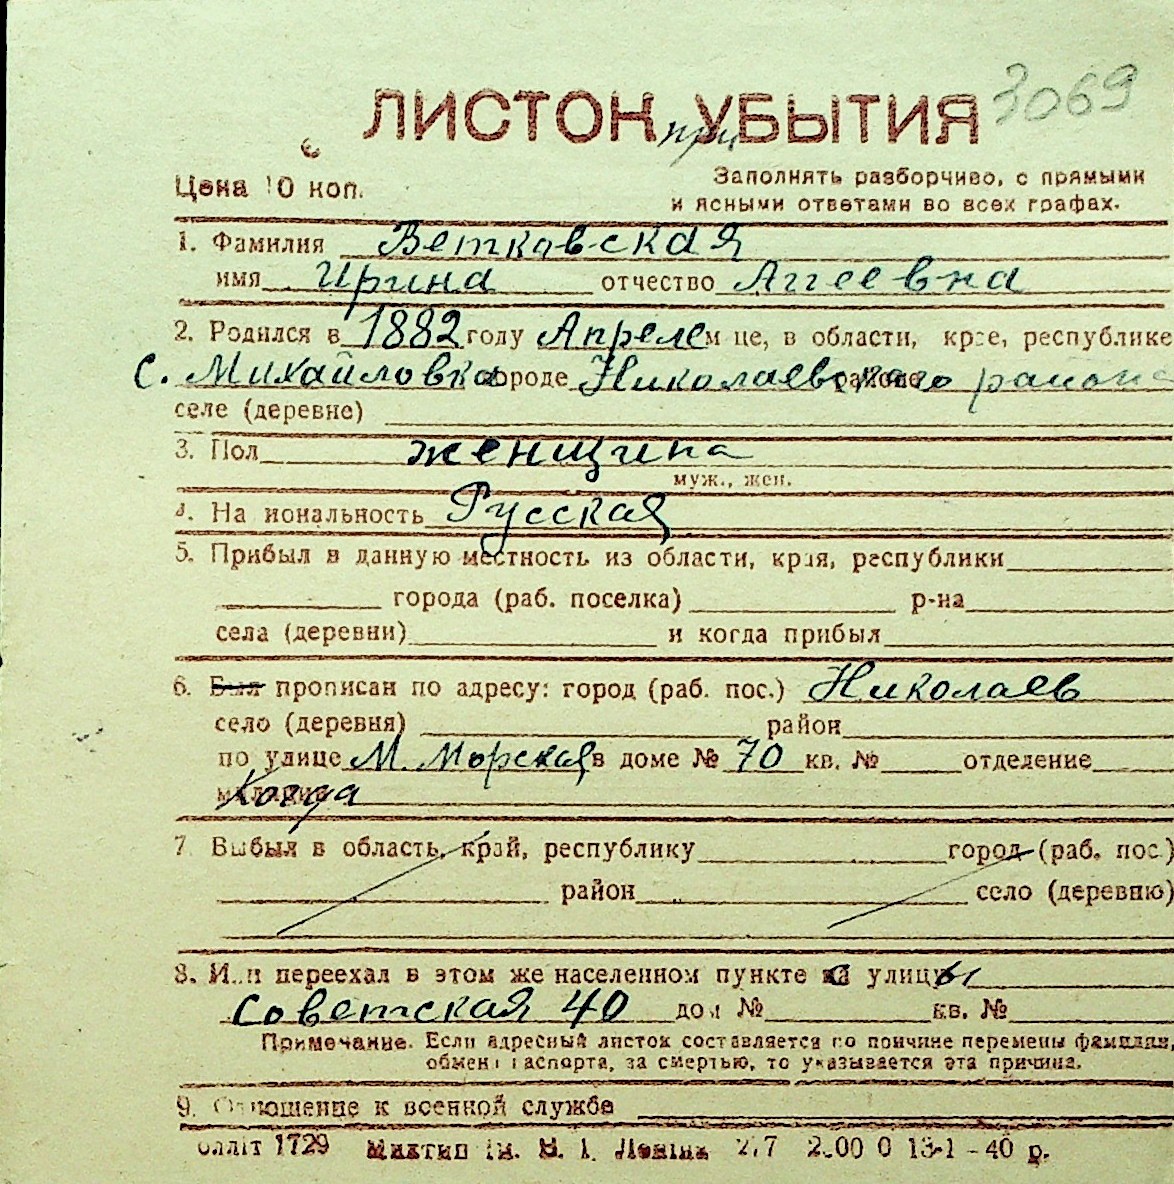 3069
ЛИСТОК УБЫТИЯ
при
Цена 10 коп.
Заполнять разборчиво, с прямыми
и ясными ответами во всех графах.
1. Фамилия Ветковская
имя Ирина отчество Агеевна
2. Родился в 1882 году Апреле м це, в области, крае, республике
с. Михайловка городе Николаевского района
селе (деревне)
3. Пол женщина
муж., жен.
4. На иональность Русская
5. Прибыл в данную местность из области, края, республики
города (раб. поселка) р-на
села (деревни) и когда прибыл
6. Был прописан по адресу: город (раб. пос.) Николаев
село (деревня) район
по улице М. Морская в доме № 70 кв. № отделение
Когда
7. Выбыл в область, край, республику город (раб. пос.)
район село (деревню)
8. Или переехал в этом же населенном пункте с улицы
Советская 40 дом № кв. №
Примечание. Если адресный листок составляется по причине перемены фамилии,
обмена паспорта, за смертью, то указывается эта причина.
9. Отношение к военной службе
1729 Миктип ім. В. І. Леніна 13-1-40 р.